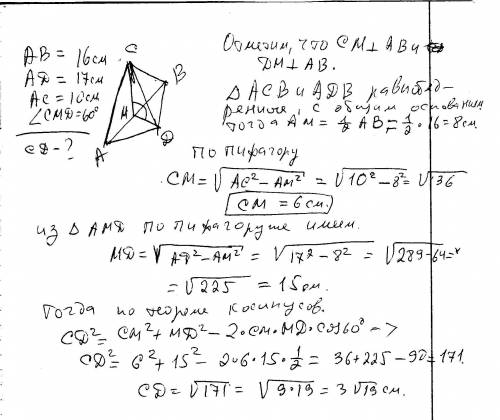 AB = 16см
AD = 17см
AC = 10см
∠CMD = 60°
CD - ?
C
B
M
D
A
Отметим, что CM⊥AB и
DM⊥AB.
△ACB и ADB равнобед-
ренные, с общим основанием
тогда AM = 1/2 AB = 1/2 · 16 = 8см
по пифагору
CM = √AC² - AM² = √10² - 8² = √36
CM = 6 см.
из △ AMD по пифагору же имеем.
MD = √AD² - AM² = √17² - 8² = √289 - 64 =
= √225 = 15см.
Тогда по теореме косинусов.
CD² = CM² + MD² - 2·CM·MD·cos60° ->
CD² = 6² + 15² - 2·6·15·1/2 = 36 + 225 - 90 = 171.
CD = √171 = √9·19 = 3√19 см.